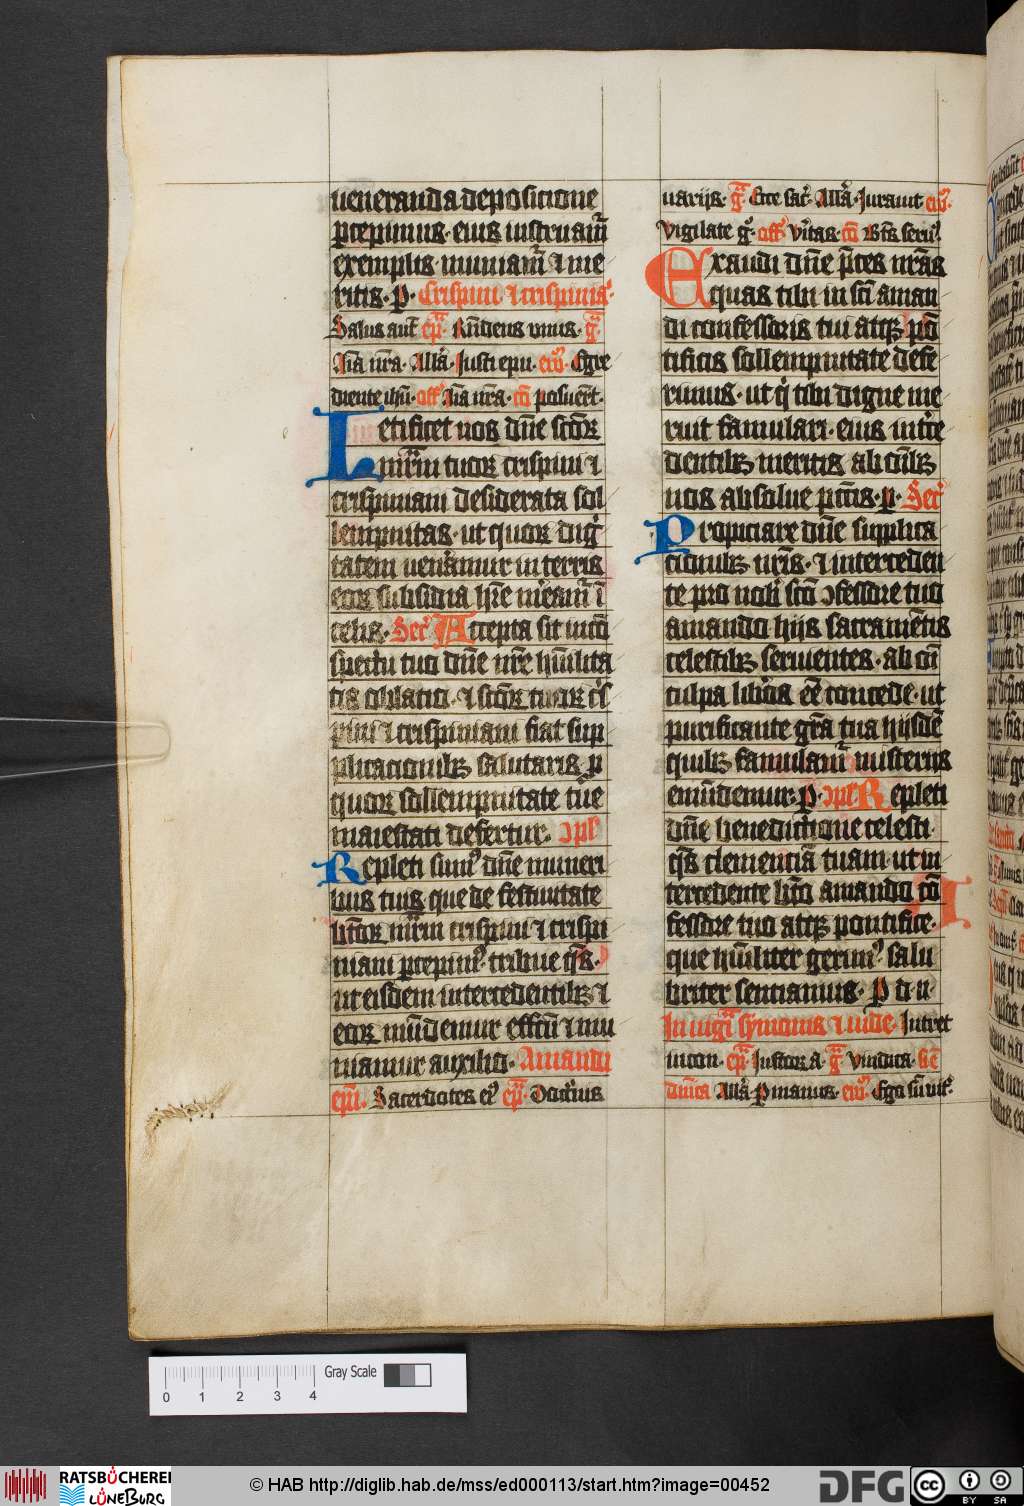 ueneranda deposicione
p̲cepimus · eius instruam̃
exemplis · muniam̃ ⁊ me
ritis · P · Crispini ⁊ crispiniaꝰ
Salus aut̃ ep̃ · Rñdens vnus · g̃
Aīa nr̃a · All̃a · Justi epu · euõ · Egre
diente ihũ · off̃ Aīa nr̃a · cõ posuer̃t ·
Letificet nos dñe sc̃oꝝ
mr̃m tuoꝝ crispini ⁊
crispiniani desiderata sol
lempnitas · ut quoꝝ dig
tatem uen̾amur in terris
eoꝝ subsidia hr̃e mer̃eam̃ ĩ
celis · Secr̃ Accepta sit in cõ
spectu tuo dñe nr̃e hũilita
tis oblatio · ⁊ sc̃oꝝ tuoꝝ c̾s
pini ⁊ crispiniani fiat sup
plicacionibꝫ salutaris p̲
quoꝝ sollempnitate tue
maiestati defertur · ɔpl̃
Repleti sumꝰ dñe muneri
bus tuis que de festiuitate
bt̃oꝝ mr̃m crispini ⁊ crispi
niani p̲cepimꝰ · tribue q̃s ·
ut eisdem intercedentibꝫ ⁊
eoꝝ mũdemur eff̃cũ ⁊ mu
niamur auxilio · Amandi
ep̃i · Sacerdotes eꝰ ep̃ · Doct̾inis
uarijs · g̃ Ecce sac̃ · All̃a · Jurauit euõ ·
Vigilate g̊ · off̃ V̾itas · cõ Bt̃s seruꝰ
Exaudi dñe p̃ces nr̃as
quas tibi in sc̃i aman
di confessoris tui atqꝫ põ
tificis sollempnitate defe
rimus · ut q̾ tibi digne me
ruit famulari · eius int̾ce
dentibꝫ meritis ab oĩbꝫ
nos absolue pc̃cis · p · Secr̃
Propiciare dñe supplica
cionibꝫ nr̃is · ⁊ interceden
te pro nobis sc̃o ɔfessore tuo
amando hijs sacramẽtis
celestibꝫ seruientes · ab oĩ
culpa lib̾os eẽ concede · ut
purificante gr̃a tua hijsdẽ
quibꝫ famulam̃ misterijs
emũdemur · P · ɔpl̃ Repleti
dñe benedictione celesti ·
q̃s clementiã tuam ut in
tercedente bt̃o amando cõ
fessore tuo atqꝫ pontifice ·
que hũiliter gerimꝰ salu
briter senciamus · P d u ·
In uigĩ symonis ⁊ iude · Intret
in con · ep̃ · Justoꝝ a · g̃ · Vindica · sic̃
dñnica All̃a P manus · euõ · Ego sũ vit̾
Gray Scale
0 1 2 3 4
RATSBÜCHEREI
LÜNEBURG
© HAB http://diglib.hab.de/mss/ed000113/start.htm?image=00452
DFG
cc BY SA